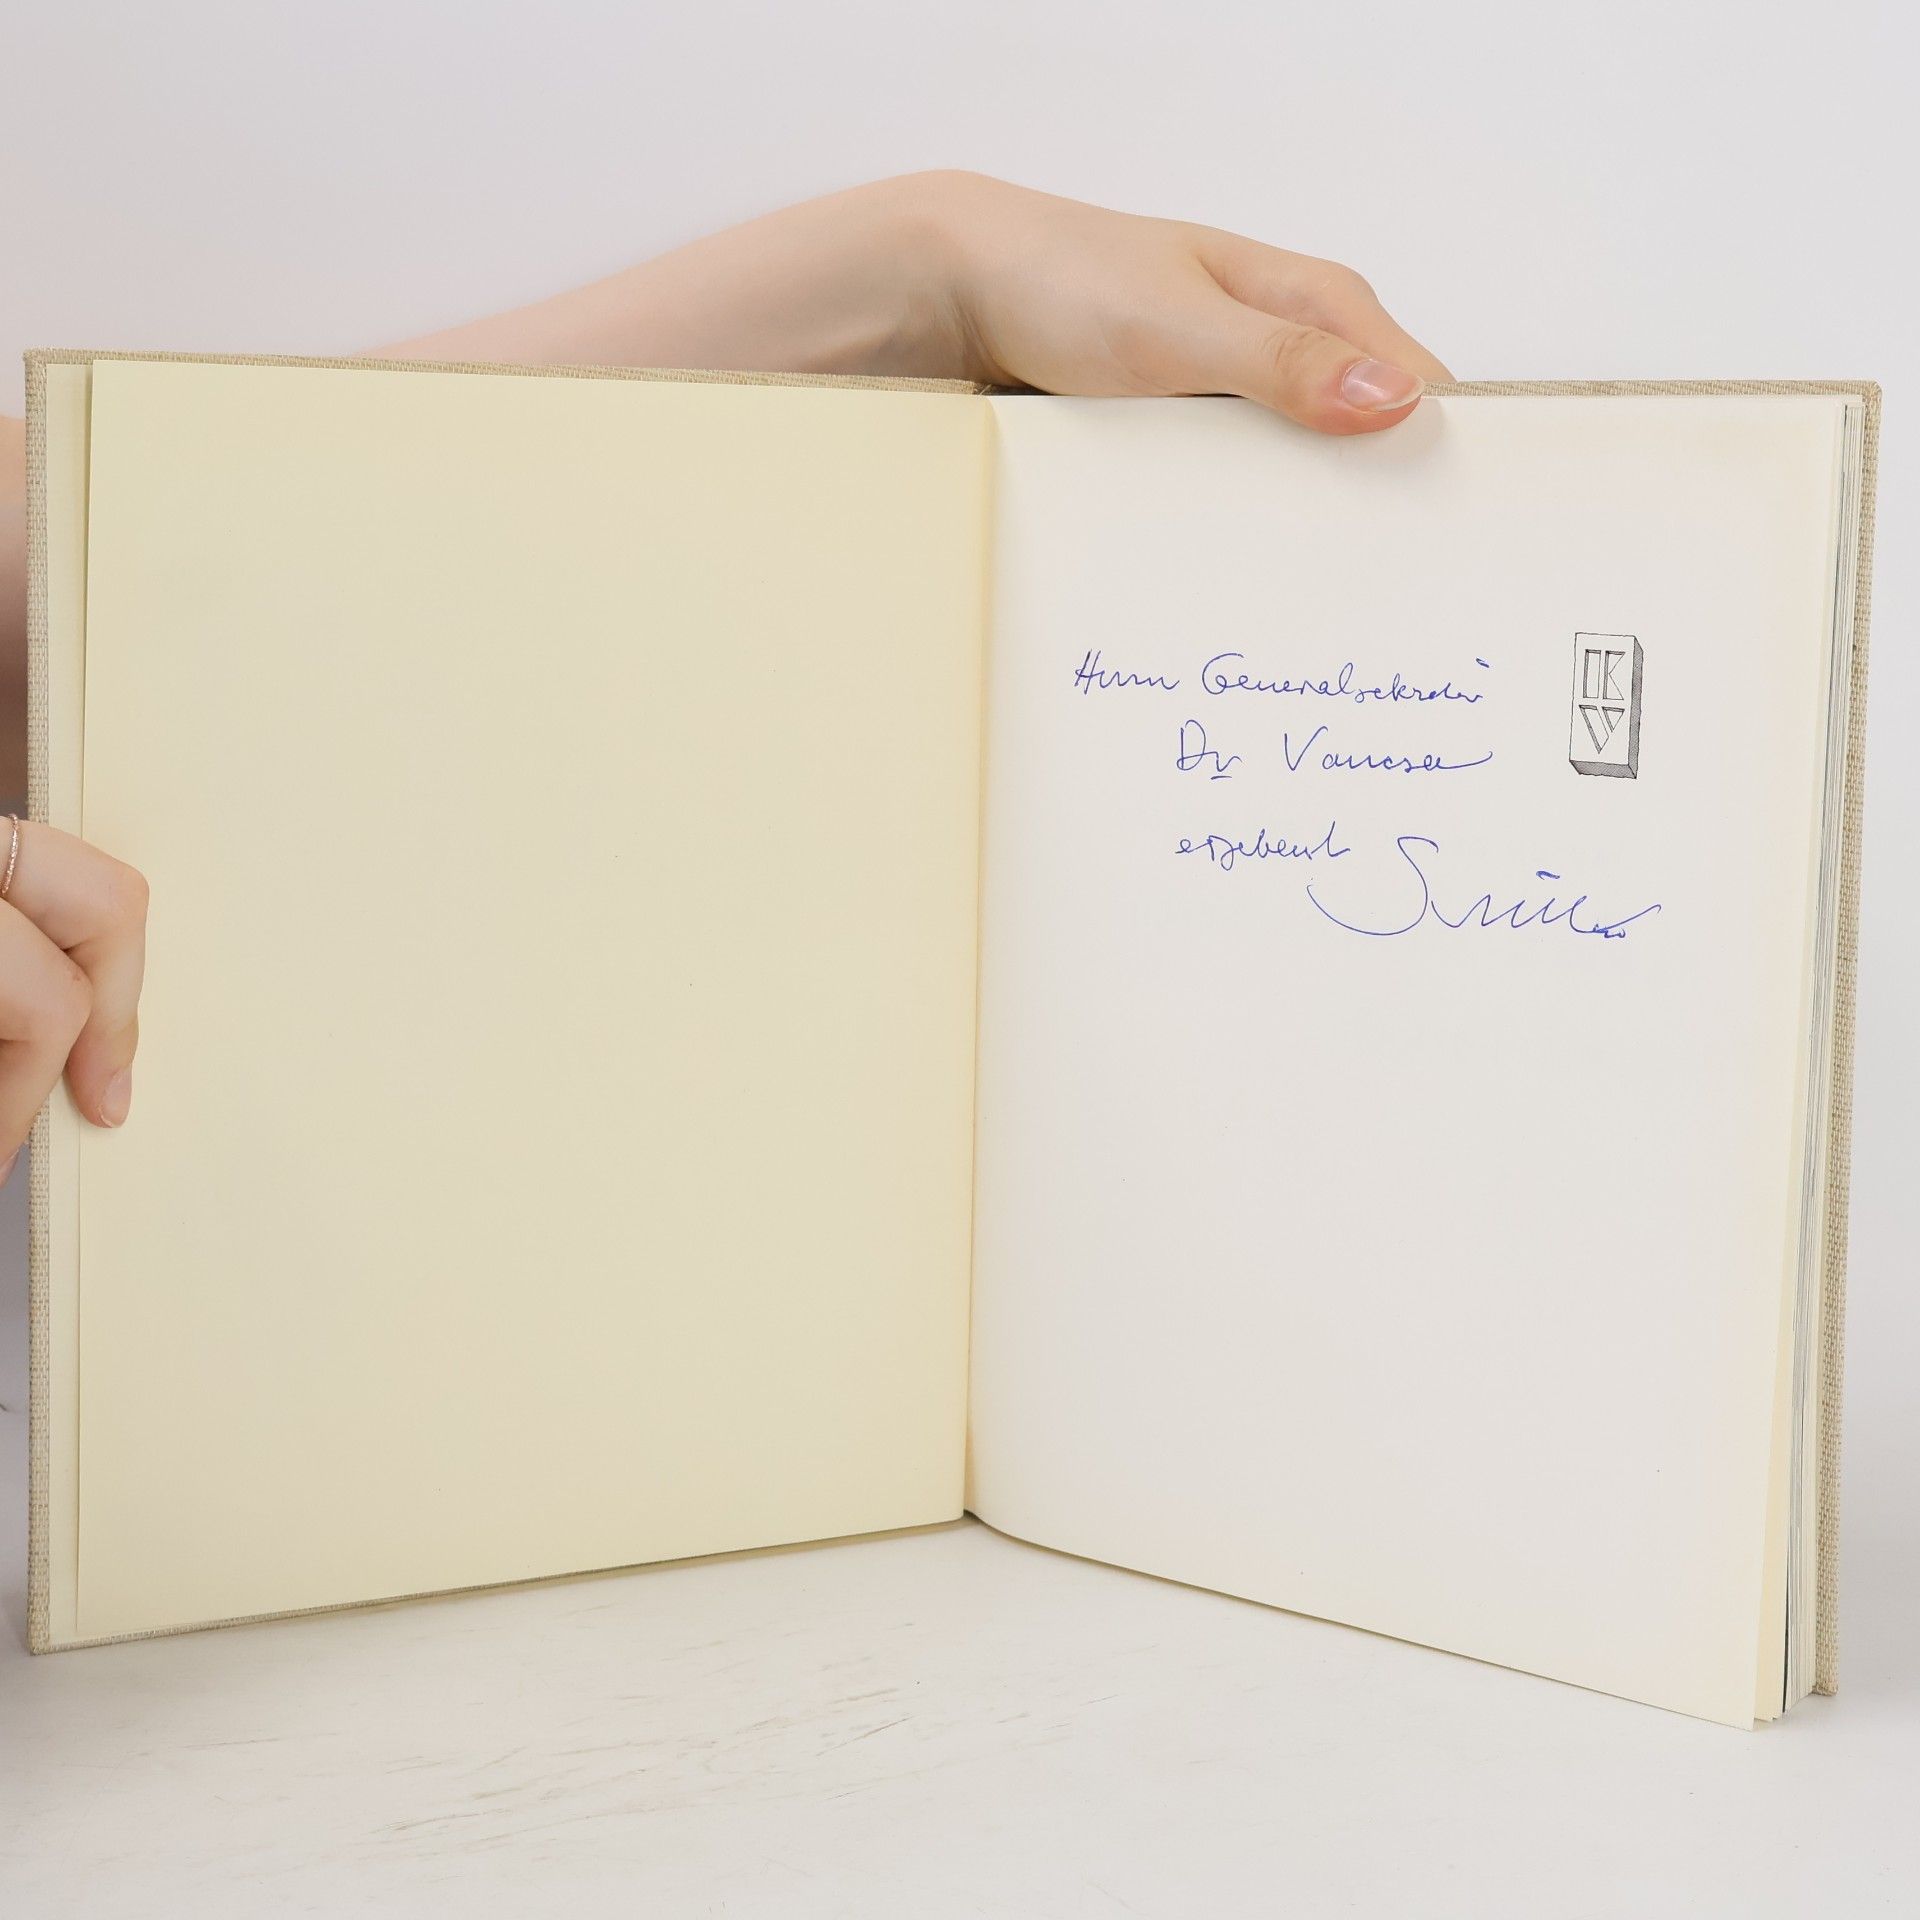 Herrn Generalsekretär
Dr Vancsa
ergebenst